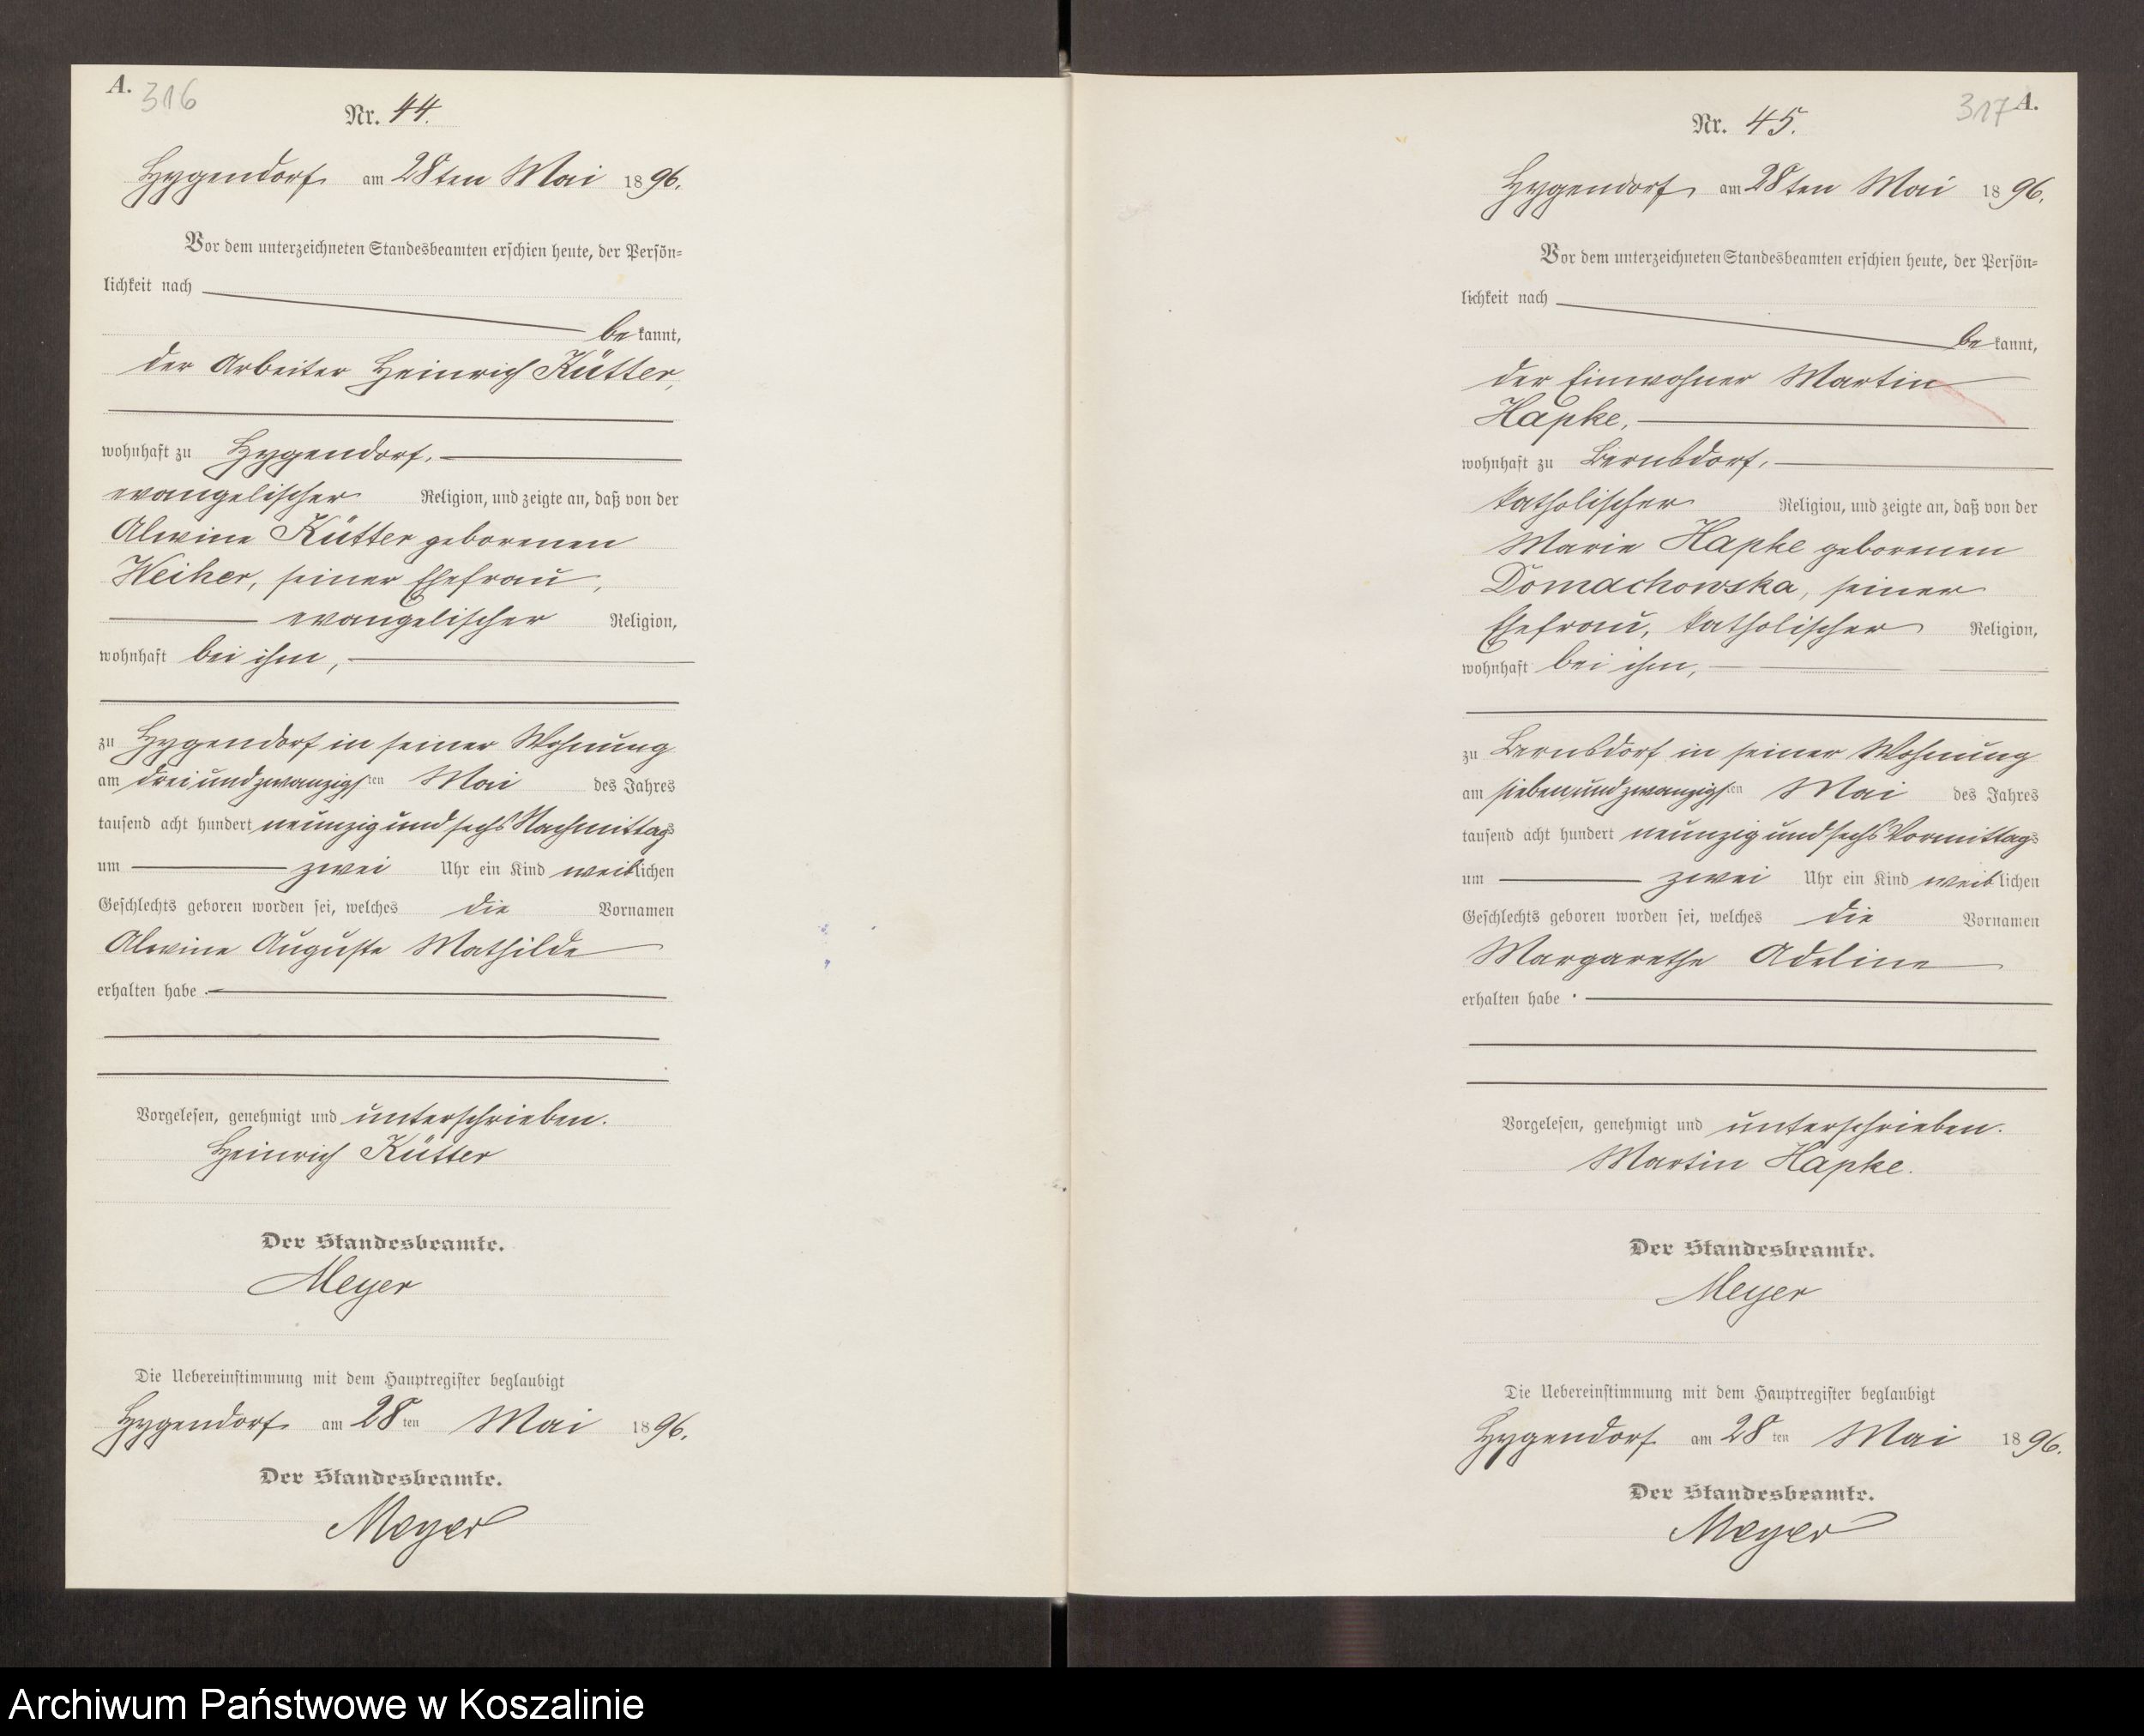 A. 316
Nr. 44.
Hygendorf am 28ten Mai 1896.
Vor dem unterzeichneten Standesbeamten erschien heute, der Persön=
lichkeit nach
bekannt,
der Arbeiter Heinrich Kütter,
wohnhaft zu Hygendorf,
evangelischer Religion, und zeigte an, daß von der
Alwine Kütter geborenen
Weiher, seiner Ehefrau,
evangelischer Religion,
wohnhaft bei ihm,
zu Hygendorf in seiner Wohnung
am dreiundzwanzigsten Mai des Jahres
tausend acht hundert neunzig und sechs Nachmittags
um zwei Uhr ein Kind weiblichen
Geschlechts geboren worden sei, welches die Vornamen
Alwine Auguste Mathilde
erhalten habe.
Vorgelesen, genehmigt und unterschrieben.
Heinrich Kütter
Der Standesbeamte.
Meyer
Die Uebereinstimmung mit dem Hauptregister beglaubigt
Hygendorf am 28ten Mai 1896.
Der Standesbeamte.
Meyer
317 A.
Nr. 45.
Hygendorf am 28ten Mai 1896.
Vor dem unterzeichneten Standesbeamten erschien heute, der Persön=
lichkeit nach
bekannt,
der Einwohner Martin
Hapke,
wohnhaft zu Bernsdorf,
katholischer Religion, und zeigte an, daß von der
Marie Hapke geborenen
Domachowska, seiner
Ehefrau, katholischer Religion,
wohnhaft bei ihm,
zu Bernsdorf in seiner Wohnung
am siebenundzwanzigsten Mai des Jahres
tausend acht hundert neunzig und sechs Vormittags
um zwei Uhr ein Kind weiblichen
Geschlechts geboren worden sei, welches die Vornamen
Margarethe Adeline
erhalten habe.
Vorgelesen, genehmigt und unterschrieben.
Martin Hapke.
Der Standesbeamte.
Meyer
Die Uebereinstimmung mit dem Hauptregister beglaubigt
Hygendorf am 28ten Mai 1896.
Der Standesbeamte.
Meyer
Archiwum Państwowe w Koszalinie